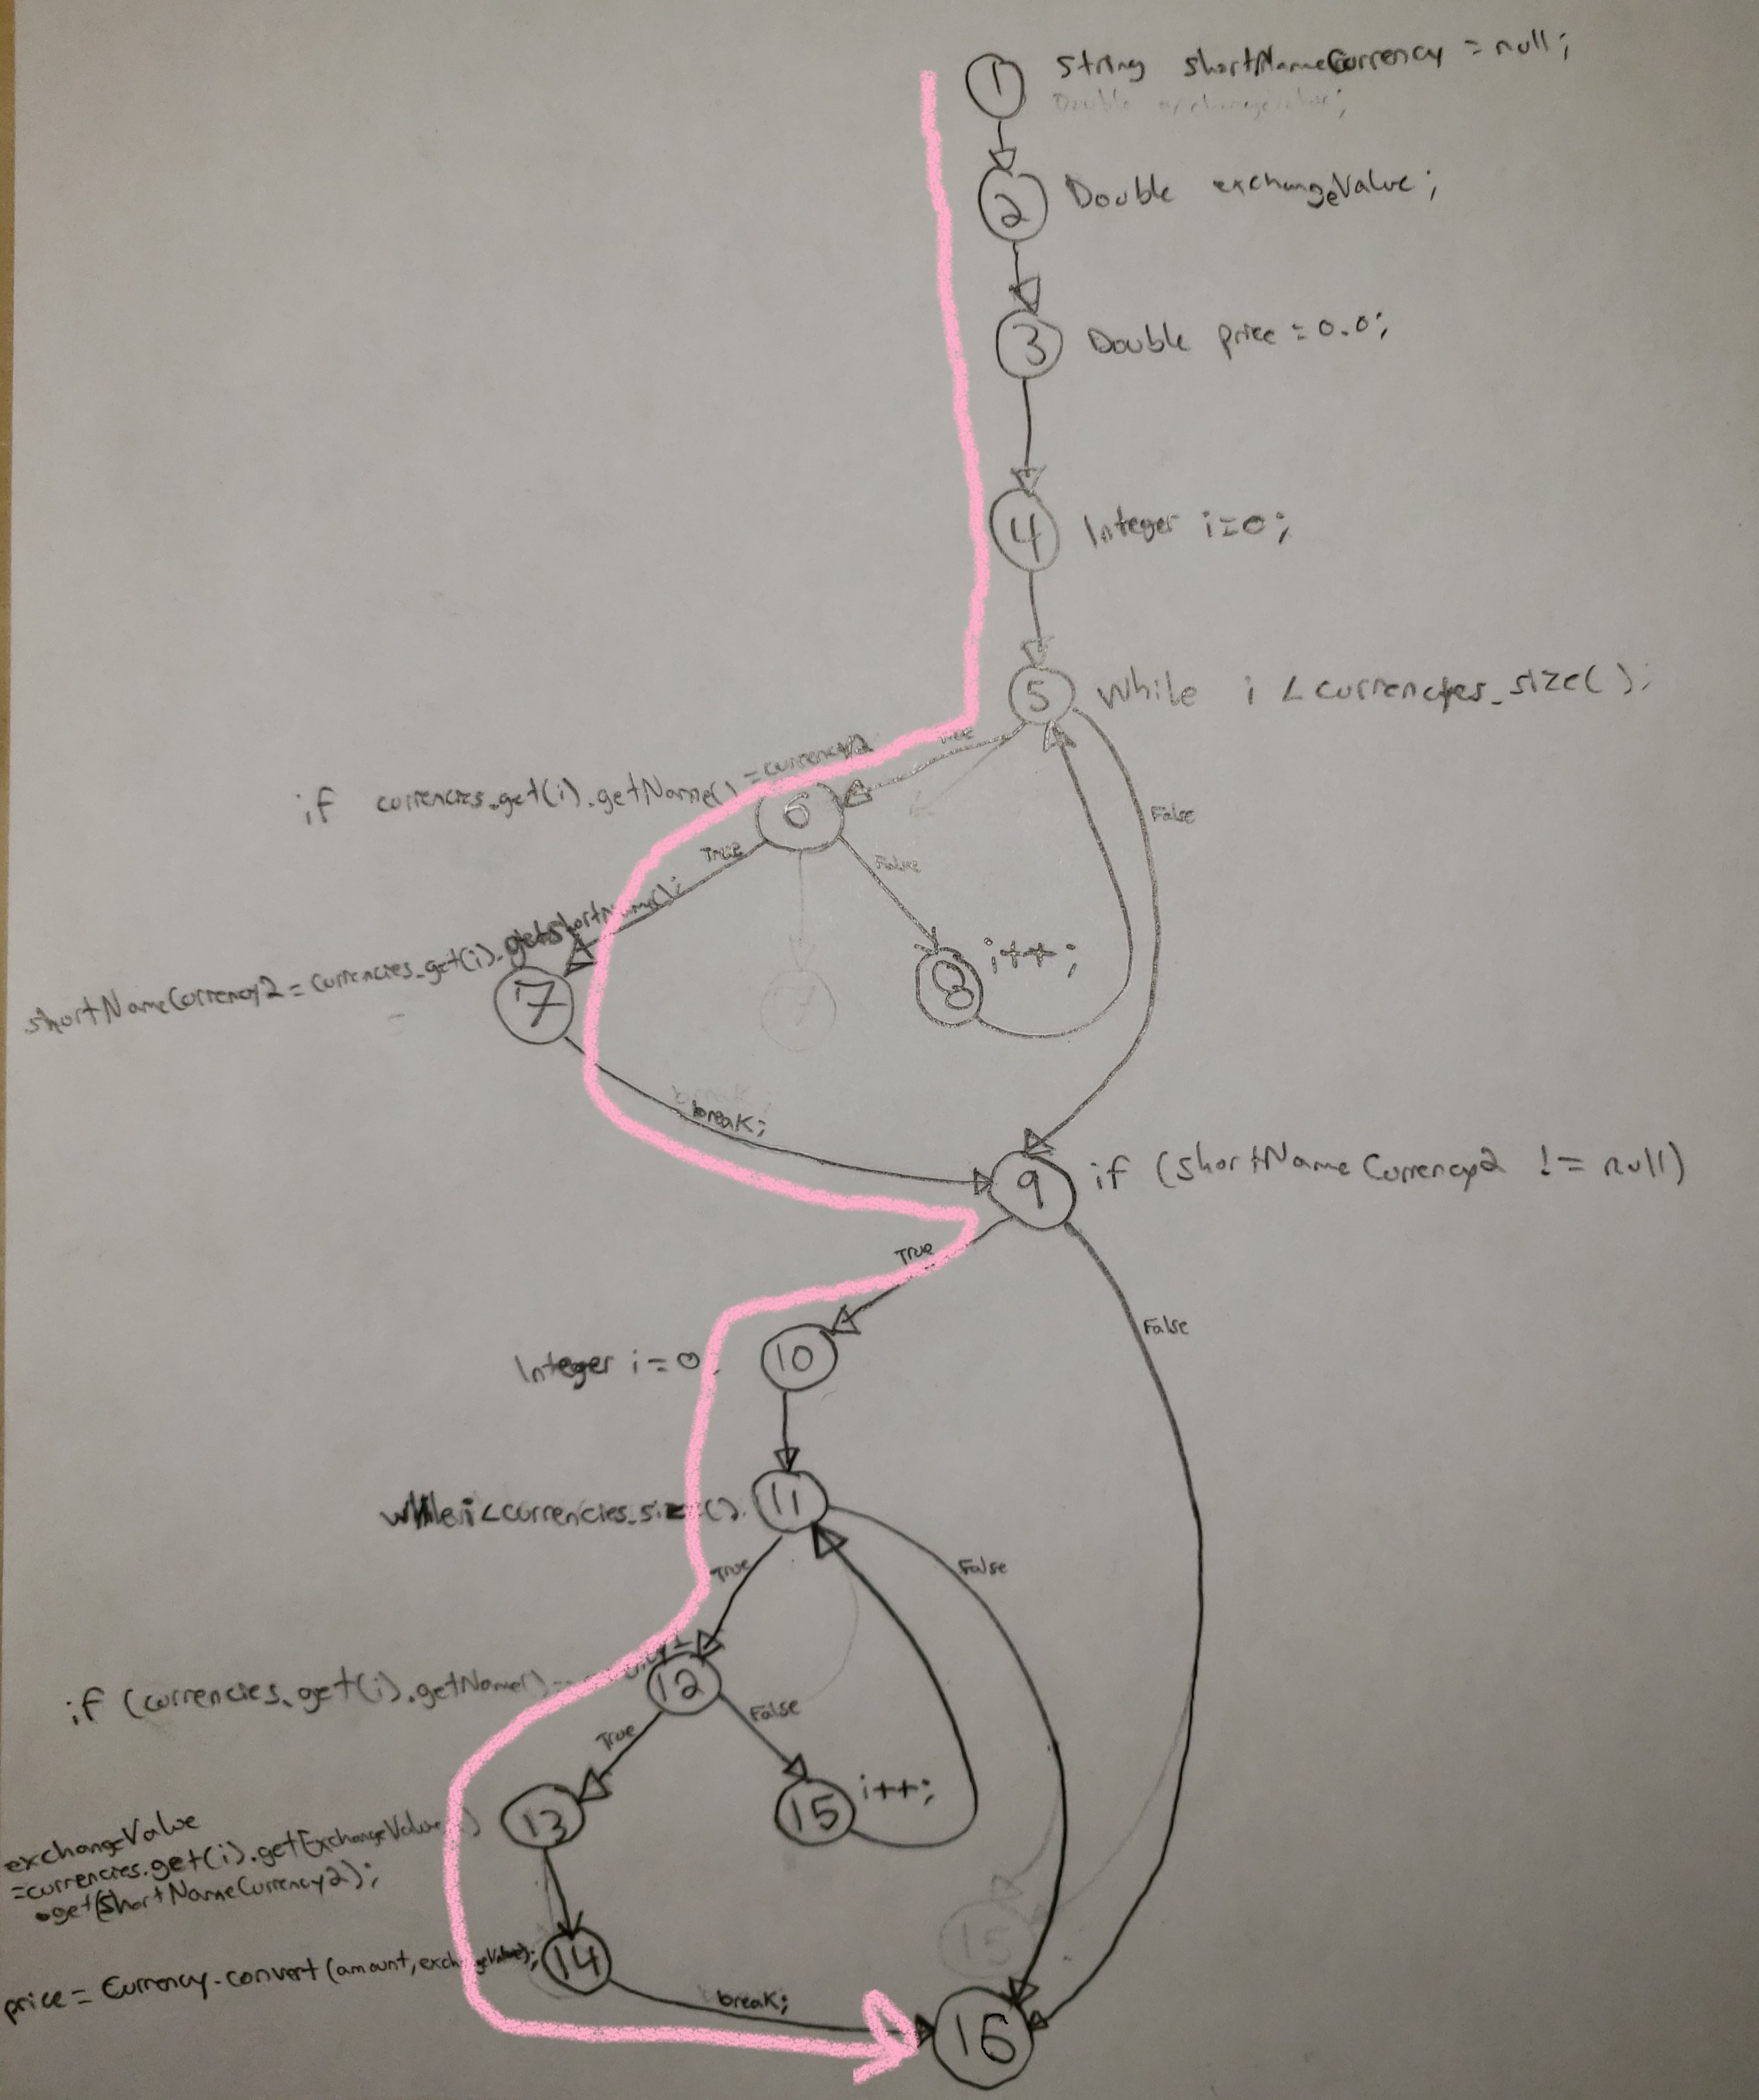 1 String shortNameCurrency = null;
Double exchangeValue;
2 Double exchangeValue;
3 Double price = 0.0;
4 Integer i=0;
5 While i < currencies.size();
True
False
if currencies.get(i).getName() = currency2
6
True
False
shortNameCurrency2 = currencies.get(i).getShortName();
7
8 i++;
7
break;
break;
9 if (shortNameCurrency2 != null)
True
False
Integer i = 0
10
while i < currencies.size().
11
True
False
if (currencies.get(i).getName()
12
True
False
13
15 i++;
exchangeValue
=currencies.get(i).getExchangeValue
.get(ShortNameCurrency2);
15
price = Currency.convert(amount, exchangeValue);
14
break;
16